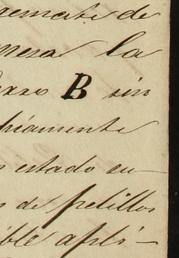 remate de
mera la
B sin
camente
estado en
s de pelillos
ible apli-